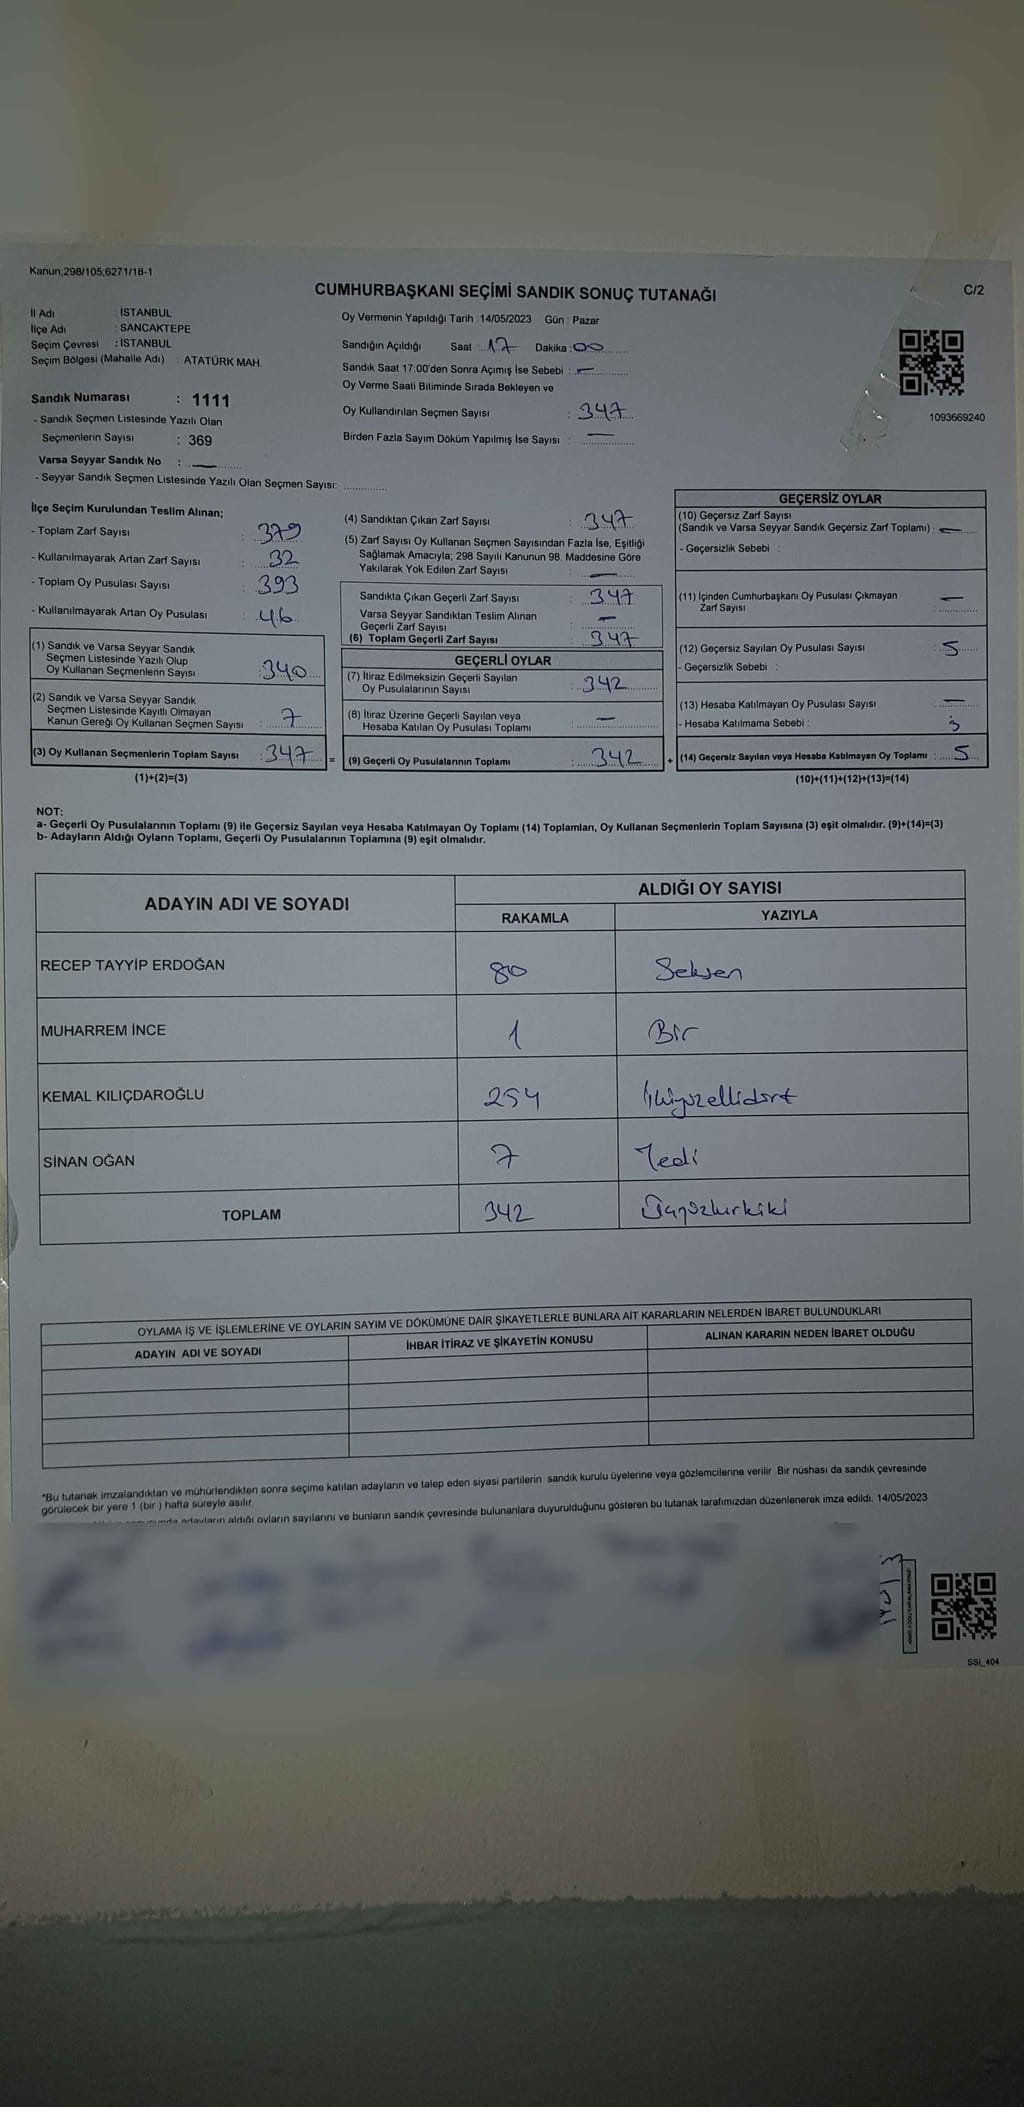 Kanun;298/105;6271/18-1
CUMHURBAŞKANI SEÇİMİ SANDIK SONUÇ TUTANAĞI
C/2
İl Adı : İSTANBUL
İlçe Adı : SANCAKTEPE
Seçim Çevresi : İSTANBUL
Seçim Bölgesi (Mahalle Adı) : ATATÜRK MAH.
Sandık Numarası : 1111
- Sandık Seçmen Listesinde Yazılı Olan
Seçmenlerin Sayısı : 369
Varsa Seyyar Sandık No : —
- Seyyar Sandık Seçmen Listesinde Yazılı Olan Seçmen Sayısı:
Oy Vermenin Yapıldığı Tarih : 14/05/2023 Gün : Pazar
Sandığın Açıldığı Saat : 17 Dakika : 00
Sandık Saat 17:00'den Sonra Açımış İse Sebebi : —
Oy Verme Saati Bitiminde Sırada Bekleyen ve
Oy Kullandırılan Seçmen Sayısı : 347
Birden Fazla Sayım Döküm Yapılmış İse Sayısı : —
1093669240
İlçe Seçim Kurulundan Teslim Alınan;
- Toplam Zarf Sayısı : 379
- Kullanılmayarak Artan Zarf Sayısı : 32
- Toplam Oy Pusulası Sayısı : 393
- Kullanılmayarak Artan Oy Pusulası : 46
(1) Sandık ve Varsa Seyyar Sandık
Seçmen Listesinde Yazılı Olup
Oy Kullanan Seçmenlerin Sayısı : 340
(2) Sandık ve Varsa Seyyar Sandık
Seçmen Listesinde Kayıtlı Olmayan
Kanun Gereği Oy Kullanan Seçmen Sayısı : 7
(3) Oy Kullanan Seçmenlerin Toplam Sayısı : 347 =
(1)+(2)=(3)
(4) Sandıktan Çıkan Zarf Sayısı : 347
(5) Zarf Sayısı Oy Kullanan Seçmen Sayısından Fazla İse, Eşitliği
Sağlamak Amacıyla; 298 Sayılı Kanunun 98. Maddesine Göre
Yakılarak Yok Edilen Zarf Sayısı : —
Sandıkta Çıkan Geçerli Zarf Sayısı : 347
Varsa Seyyar Sandıktan Teslim Alınan
Geçerli Zarf Sayısı : —
(6) Toplam Geçerli Zarf Sayısı : 347
GEÇERLİ OYLAR
(7) İtiraz Edilmeksizin Geçerli Sayılan
Oy Pusulalarının Sayısı : 342
(8) İtiraz Üzerine Geçerli Sayılan veya
Hesaba Katılan Oy Pusulası Toplamı : —
(9) Geçerli Oy Pusulalarının Toplamı : 342 +
GEÇERSİZ OYLAR
(10) Geçersiz Zarf Sayısı
(Sandık ve Varsa Seyyar Sandık Geçersiz Zarf Toplamı) : —
- Geçersizlik Sebebi :
(11) İçinden Cumhurbaşkanı Oy Pusulası Çıkmayan
Zarf Sayısı : —
(12) Geçersiz Sayılan Oy Pusulası Sayısı : 5
- Geçersizlik Sebebi :
(13) Hesaba Katılmayan Oy Pusulası Sayısı : —
- Hesaba Katılmama Sebebi :
(14) Geçersiz Sayılan veya Hesaba Katılmayan Oy Toplamı : 5
(10)+(11)+(12)+(13)=(14)
NOT:
a- Geçerli Oy Pusulalarının Toplamı (9) ile Geçersiz Sayılan veya Hesaba Katılmayan Oy Toplamı (14) Toplamları, Oy Kullanan Seçmenlerin Toplam Sayısına (3) eşit olmalıdır. (9)+(14)=(3)
b- Adayların Aldığı Oyların Toplamı, Geçerli Oy Pusulalarının Toplamına (9) eşit olmalıdır.
ADAYIN ADI VE SOYADI
ALDIĞI OY SAYISI
RAKAMLA YAZIYLA
RECEP TAYYİP ERDOĞAN 80 Seksen
MUHARREM İNCE 1 Bir
KEMAL KILIÇDAROĞLU 254 İkiyüzellidört
SİNAN OĞAN 7 Yedi
TOPLAM 342 Üçyüzkırkiki
OYLAMA İŞ VE İŞLEMLERİNE VE OYLARIN SAYIM VE DÖKÜMÜNE DAİR ŞİKAYETLERLE BUNLARA AİT KARARLARIN NELERDEN İBARET BULUNDUKLARI
ADAYIN ADI VE SOYADI İHBAR İTİRAZ VE ŞİKAYETİN KONUSU ALINAN KARARIN NEDEN İBARET OLDUĞU
*Bu tutanak imzalandıktan ve mühürlendikten sonra seçime katılan adayların ve talep eden siyasi partilerin sandık kurulu üyelerine veya gözlemcilerine verilir .Bir nüshası da sandık çevresinde
görülecek bir yere 1 (bir ) hafta süreyle asılır.
adayların aldığı oyların sayılarını ve bunların sandık çevresinde bulunanlara duyurulduğunu gösteren bu tutanak tarafımızdan düzenlenerek imza edildi. 14/05/2023
SSI_404